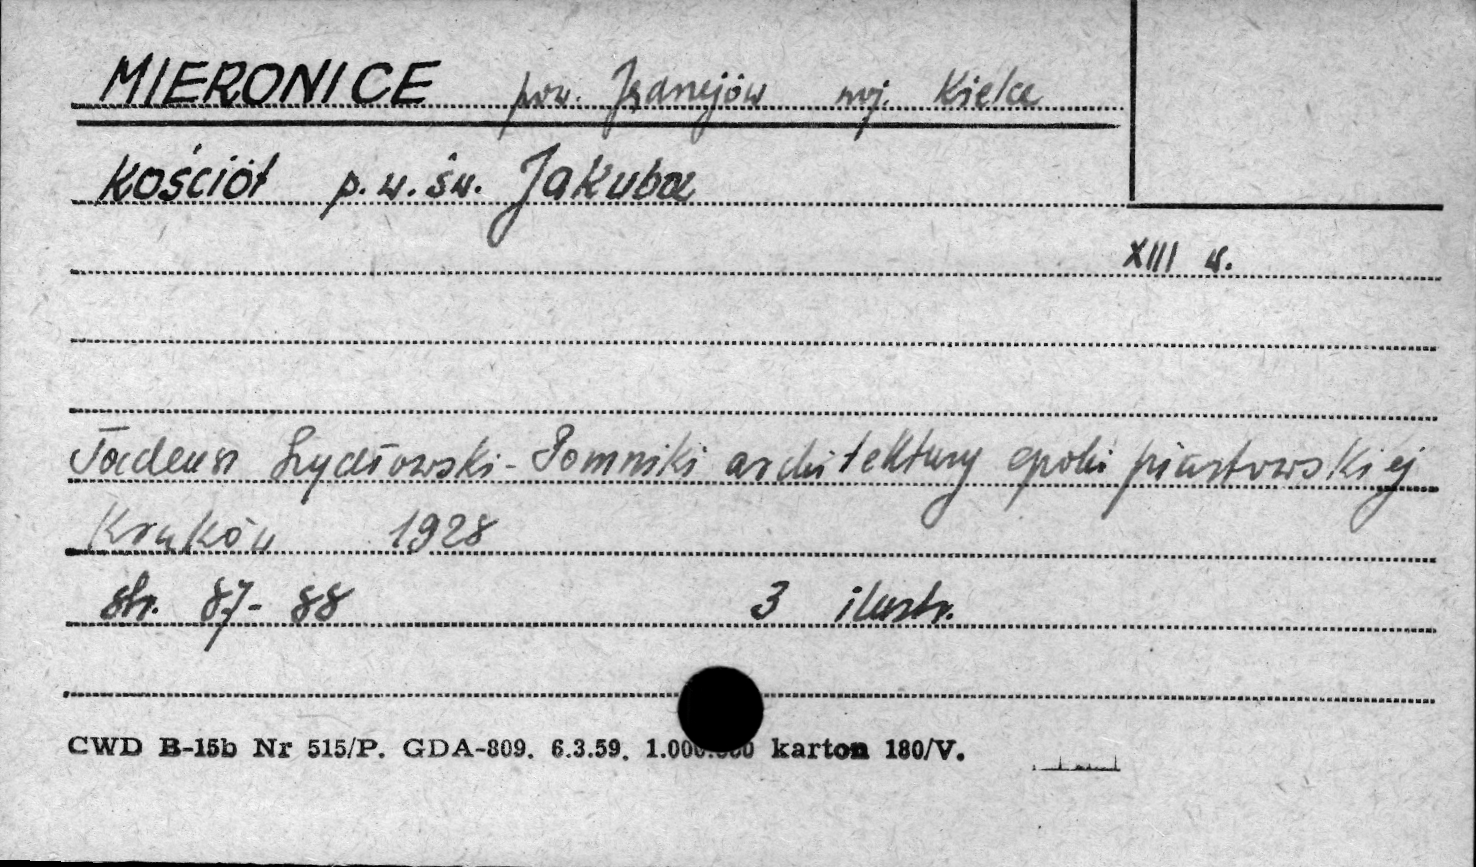 MIERONICE pow. Jędrzejów woj. Kielce
Kościół p.w. św. Jakuba
XIII w.
Tadeusz Szydłowski - Pomniki architektury epoki piastowskiej
Kraków 1928
str. 87-88 3 ilustr.
CWD B-15b Nr 515/P. GDA-809. 6.3.59. 1.000.000 karton 180/V.